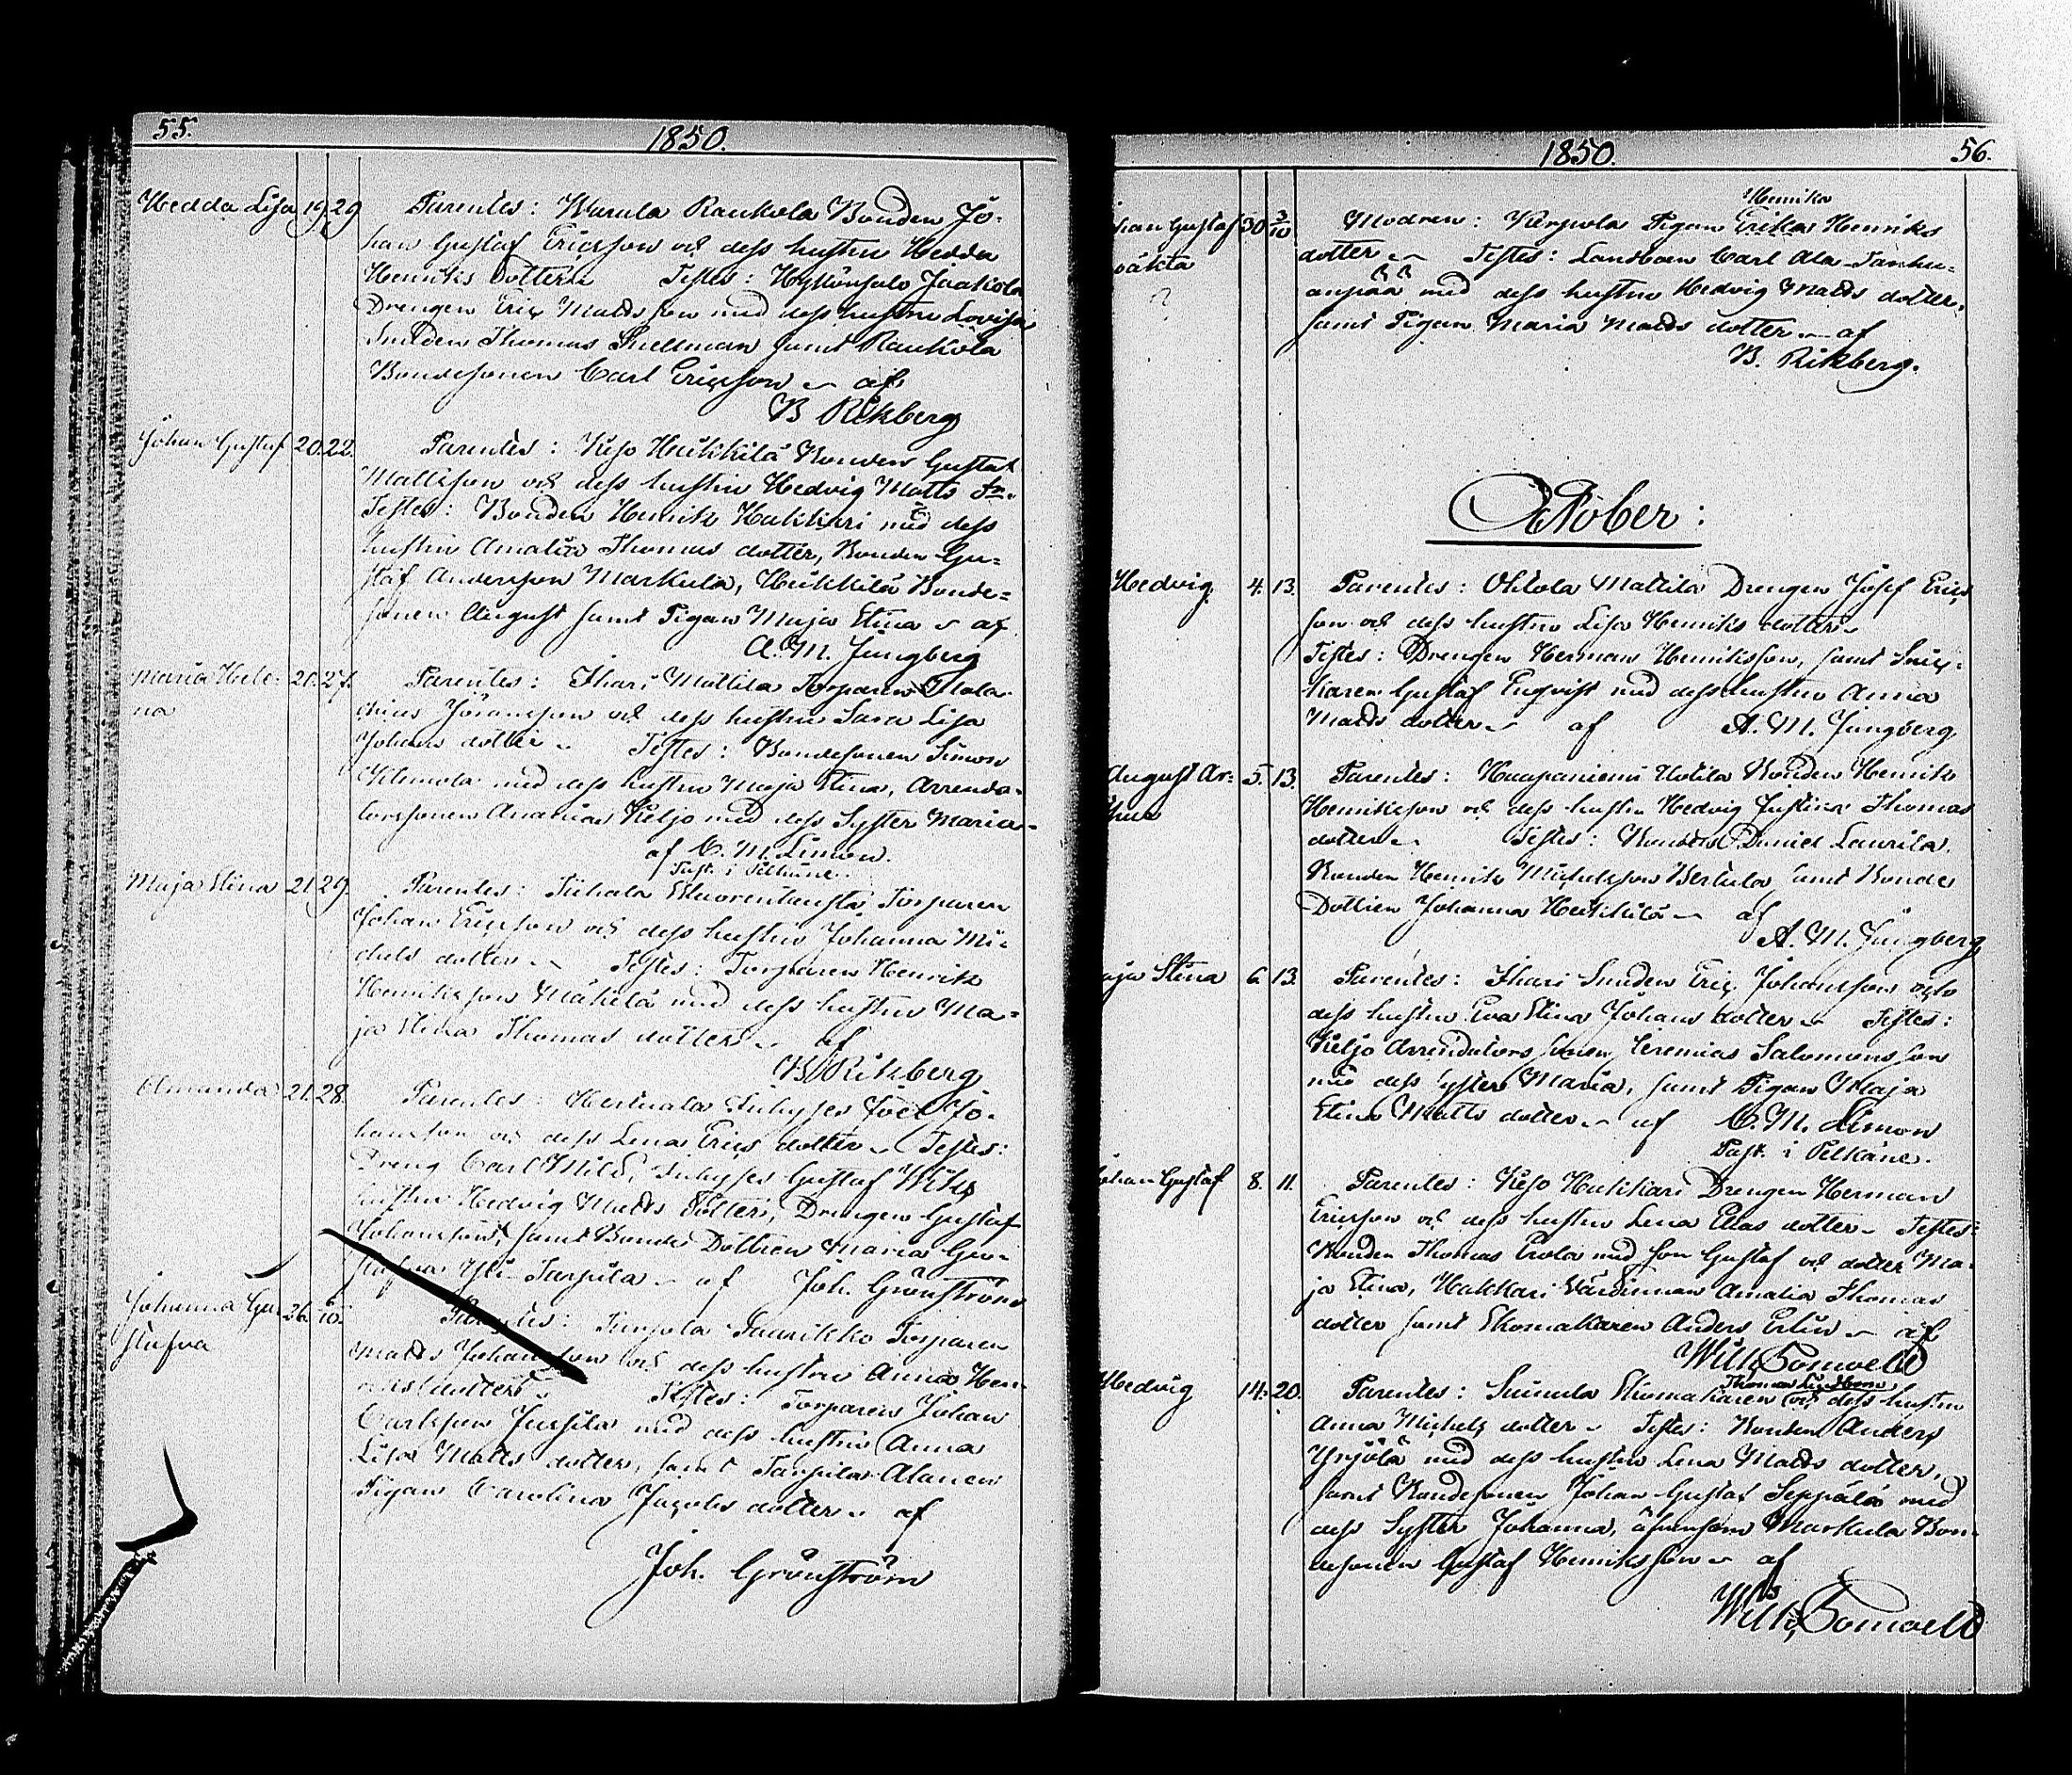 55.
1850.
Hedda Lisa 19. 29. Parentes: Warula Raukola Bonden Jo-
han Gustaf Ericsson och dess hustru Hedda
Henriks dotter Testes: Hyttönsalo Jaakola
Drengen Eric Mattsson med dess hustru Lovisa
Smeden Thomas Snellman samt Raukola
Bondesonen Carl Ericsson af
B Rikberg
Johan Gustaf 20. 22. Parentes: Keso Heikkilä Bonden Gustaf
Mattsson och dess hustru Hedvig Matts dr.
Testes: Bonden Henrik Hakkari med dess
hustru Amalia Thomas dotter, Bonden Gu-
staf Andersson Markula, Heikkilä Bonde-
sonen August samt Pigan Maja Stina af
A. M. Jungberg
Maria Hele- 21. 27. Parentes: Ihari Mattila Torparen
na
Göransson och dess hustru Sara Lisa
Johans dotter Testes: Bondesonen Simon
med dess hustru Maja Stina, Arrenda-
torssonen Ananias Keljo med dess Syster Maria
af C. M. Limon.
Past. i Pelkäne.
Maja Stina 21. 29. Parentes: Torparen
Johan Ericsson och dess hustru Johanna Mi-
chels dotter Testes: Torparen Henrik
Henriksson Mäkelä med dess hustru Ma-
ja Stina Thomas dotter af
B Rikberg
Amanda 21. 28. Parentes: Inhyses Joel Jo-
hansson och dess Lena Erics dotter Testes:
Dreng Carl Mild, Inhyses Gustaf Wiks
hustru Hedvig Matts dotter, Drengen Gustaf
Johansson, samt Bonde Dottren Maria Gu-
stafva Yli-Tarpila af Joh. Grönström
Johanna Gu- 26. 6/10. Parentes: Torparen
stafva
Matts Johansson och dess hustru Anna Hen-
riks dotter Testes: Torparen Johan
Carlsson Jussila med dess hustru Anna
Lisa Matts dotter, samt Tarpila Alanen
Pigan Carolina Jacobs dotter af
Joh. Grönström
1850.
56.
Henrika
han Gustaf 30 3/10 Modren: Kerpola Pigan Erika Henriks
oäkta
dotter Testes: Landboen Carl Ala-Tanhu-
anpää med dess hustru Hedvig Matts dotter,
samt Pigan Maria Matts dotter af
B. Rikberg.
October:
Hedvig 4. 13. Parentes: Ohtola Mattila Drengen Josef Erics
son och dess hustru Lisa Henriks dotter
Testes: Drengen Herman Henriksson, samt Snic-
karen Gustaf Enqvist med dess hustru Anna
Matts dotter af A. M. Jungberg
August Ar- 5. 13. Parentes: Haapaniemi Uotila Bonden Henrik
thur
Henriksson och dess hustru Hedvig Justina Thomas
dotter Testes: Bonden Daniel Laurila,
Bonden Henrik Michelsson Bertula samt Bonde
Dottren Johanna Heikkilä af
A. M. Jungberg
aja Stina 6. 13. Parentes: Ihari Smeden Eric Johansson och
dess hustru Eva Stina Johans dotter Testes:
Keljo Arrendators sonen Jeremias Salomonsson
med dess syster Maria, samt Pigan Maja
Stina Matts dotter af C. M. Limon
Past. i Pelkäne.
ohan Gustaf 8. 11. Parentes: Keso Hakkari Drengen Herman
Ericsson och dess hustru Lena Elias dotter Testes:
Bonden Thomas Erola med son Gustaf och dotter Ma-
ja Stina, Hakkari Värdinnan Amalia Thomas
dotter samt Skomakaren Anders Erlin af
Wilh. Sonvelld
Thomas Lindbom
Hedvig 14. 20. Parentes: Skomakaren och dess hustru
Anna Michels dotter Testes: Bonden Anders
Yrjölä med dess hustru Lena Matts dotter,
samt Bondesonen Johan Gustaf Seppälä med
dess Syster Johanna, äfvensom Markula Bon-
desonen Gustaf Henriksson af
Wilh. Sonvelld